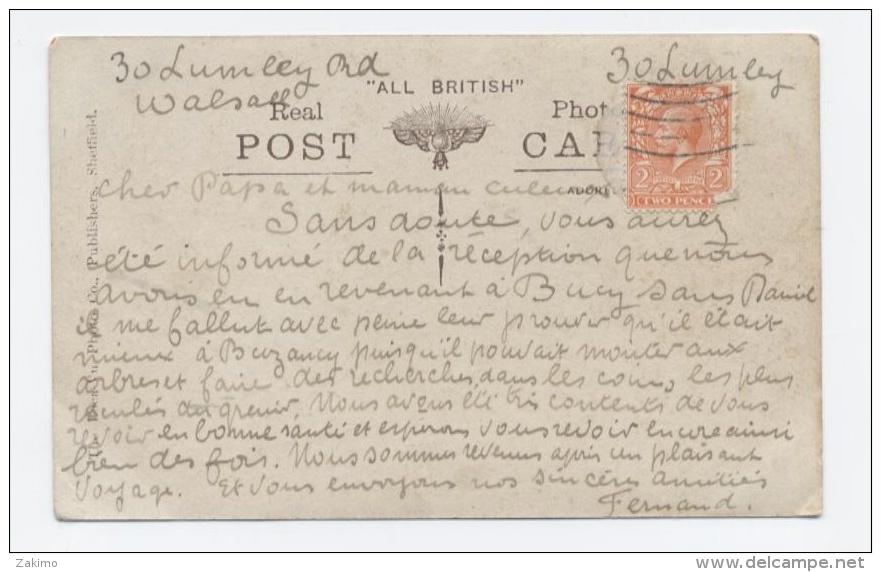 30 Lumley Rd
Walsall
30 Lumley
"ALL BRITISH"
Real Phot
POST CA
2 2
TWO PENCE
Publishers, Sheffield.
cher Papa et maman
Sans doute, vous aurez
été informé de la réception que nous
avons eu en revenant à Bucy sans Daniel
il me fallut avec peine leur prouver qu'il était
mieux à Buzancy puisqu'il pouvait monter aux
arbres et faire des recherches dans les coins les plus
reculés du grenier. Nous avons été très contents de vous
revoir en bonne santé et espérons vous revoir encore ainsi
bien des fois. Nous sommes revenus après un plaisant
voyage. Et vous envoyons nos sincères amitiés
Fernand.
Zakimo
delcampe.net